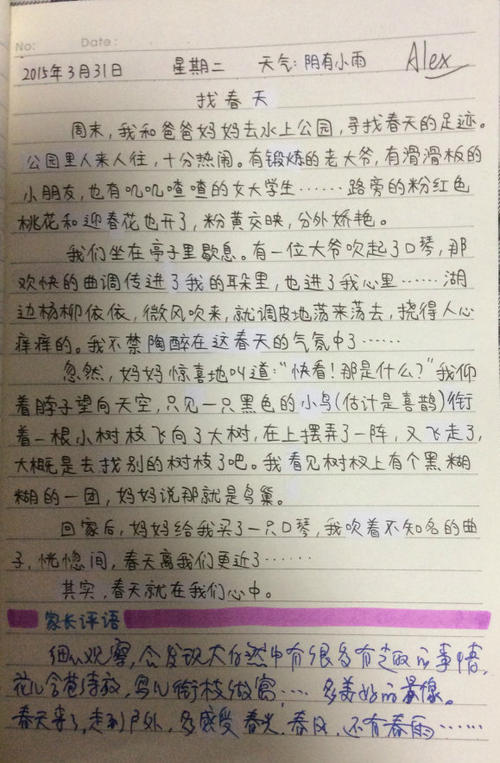 No:   Date:
2015年3月31日   星期二   天气:阴有小雨   Alex
找春天
周末,我和爸爸妈妈去水上公园,寻找春天的足迹。
公园里人来人往,十分热闹。有锻炼的老大爷,有滑滑板的
小朋友,也有叽叽喳喳的女大学生……路旁的粉红色
桃花和迎春花也开了,粉黄交映,分外娇艳。
我们坐在亭子里歇息。有一位大爷吹起了口琴,那
欢快的曲调传进了我的耳朵里,也进了我心里……湖
边杨柳依依,微风吹来,就调皮地荡来荡去,挠得人心
痒痒的。我不禁陶醉在这春天的气氛中了……
忽然,妈妈惊喜地叫道:“快看!那是什么?”我仰
着脖子望向天空,只见一只黑色的小鸟(估计是喜鹊)衔
着一根小树枝飞向了大树,在上摆弄了一阵,又飞走了,
大概是去找别的树枝了吧。我看见树杈上有个黑糊
糊的一团,妈妈说那就是鸟巢。
回家后,妈妈给我买了一只口琴,我吹着不知名的曲
子,恍惚间,春天离我们更近了……
其实,春天就在我们心中。
家长评语
细心观察,会发现大自然中有很多有趣的事情,
花儿含苞待放,鸟儿衔枝做窝……多美好的景像。
春天来了,走到户外,多感受春光、春风,还有春雨……